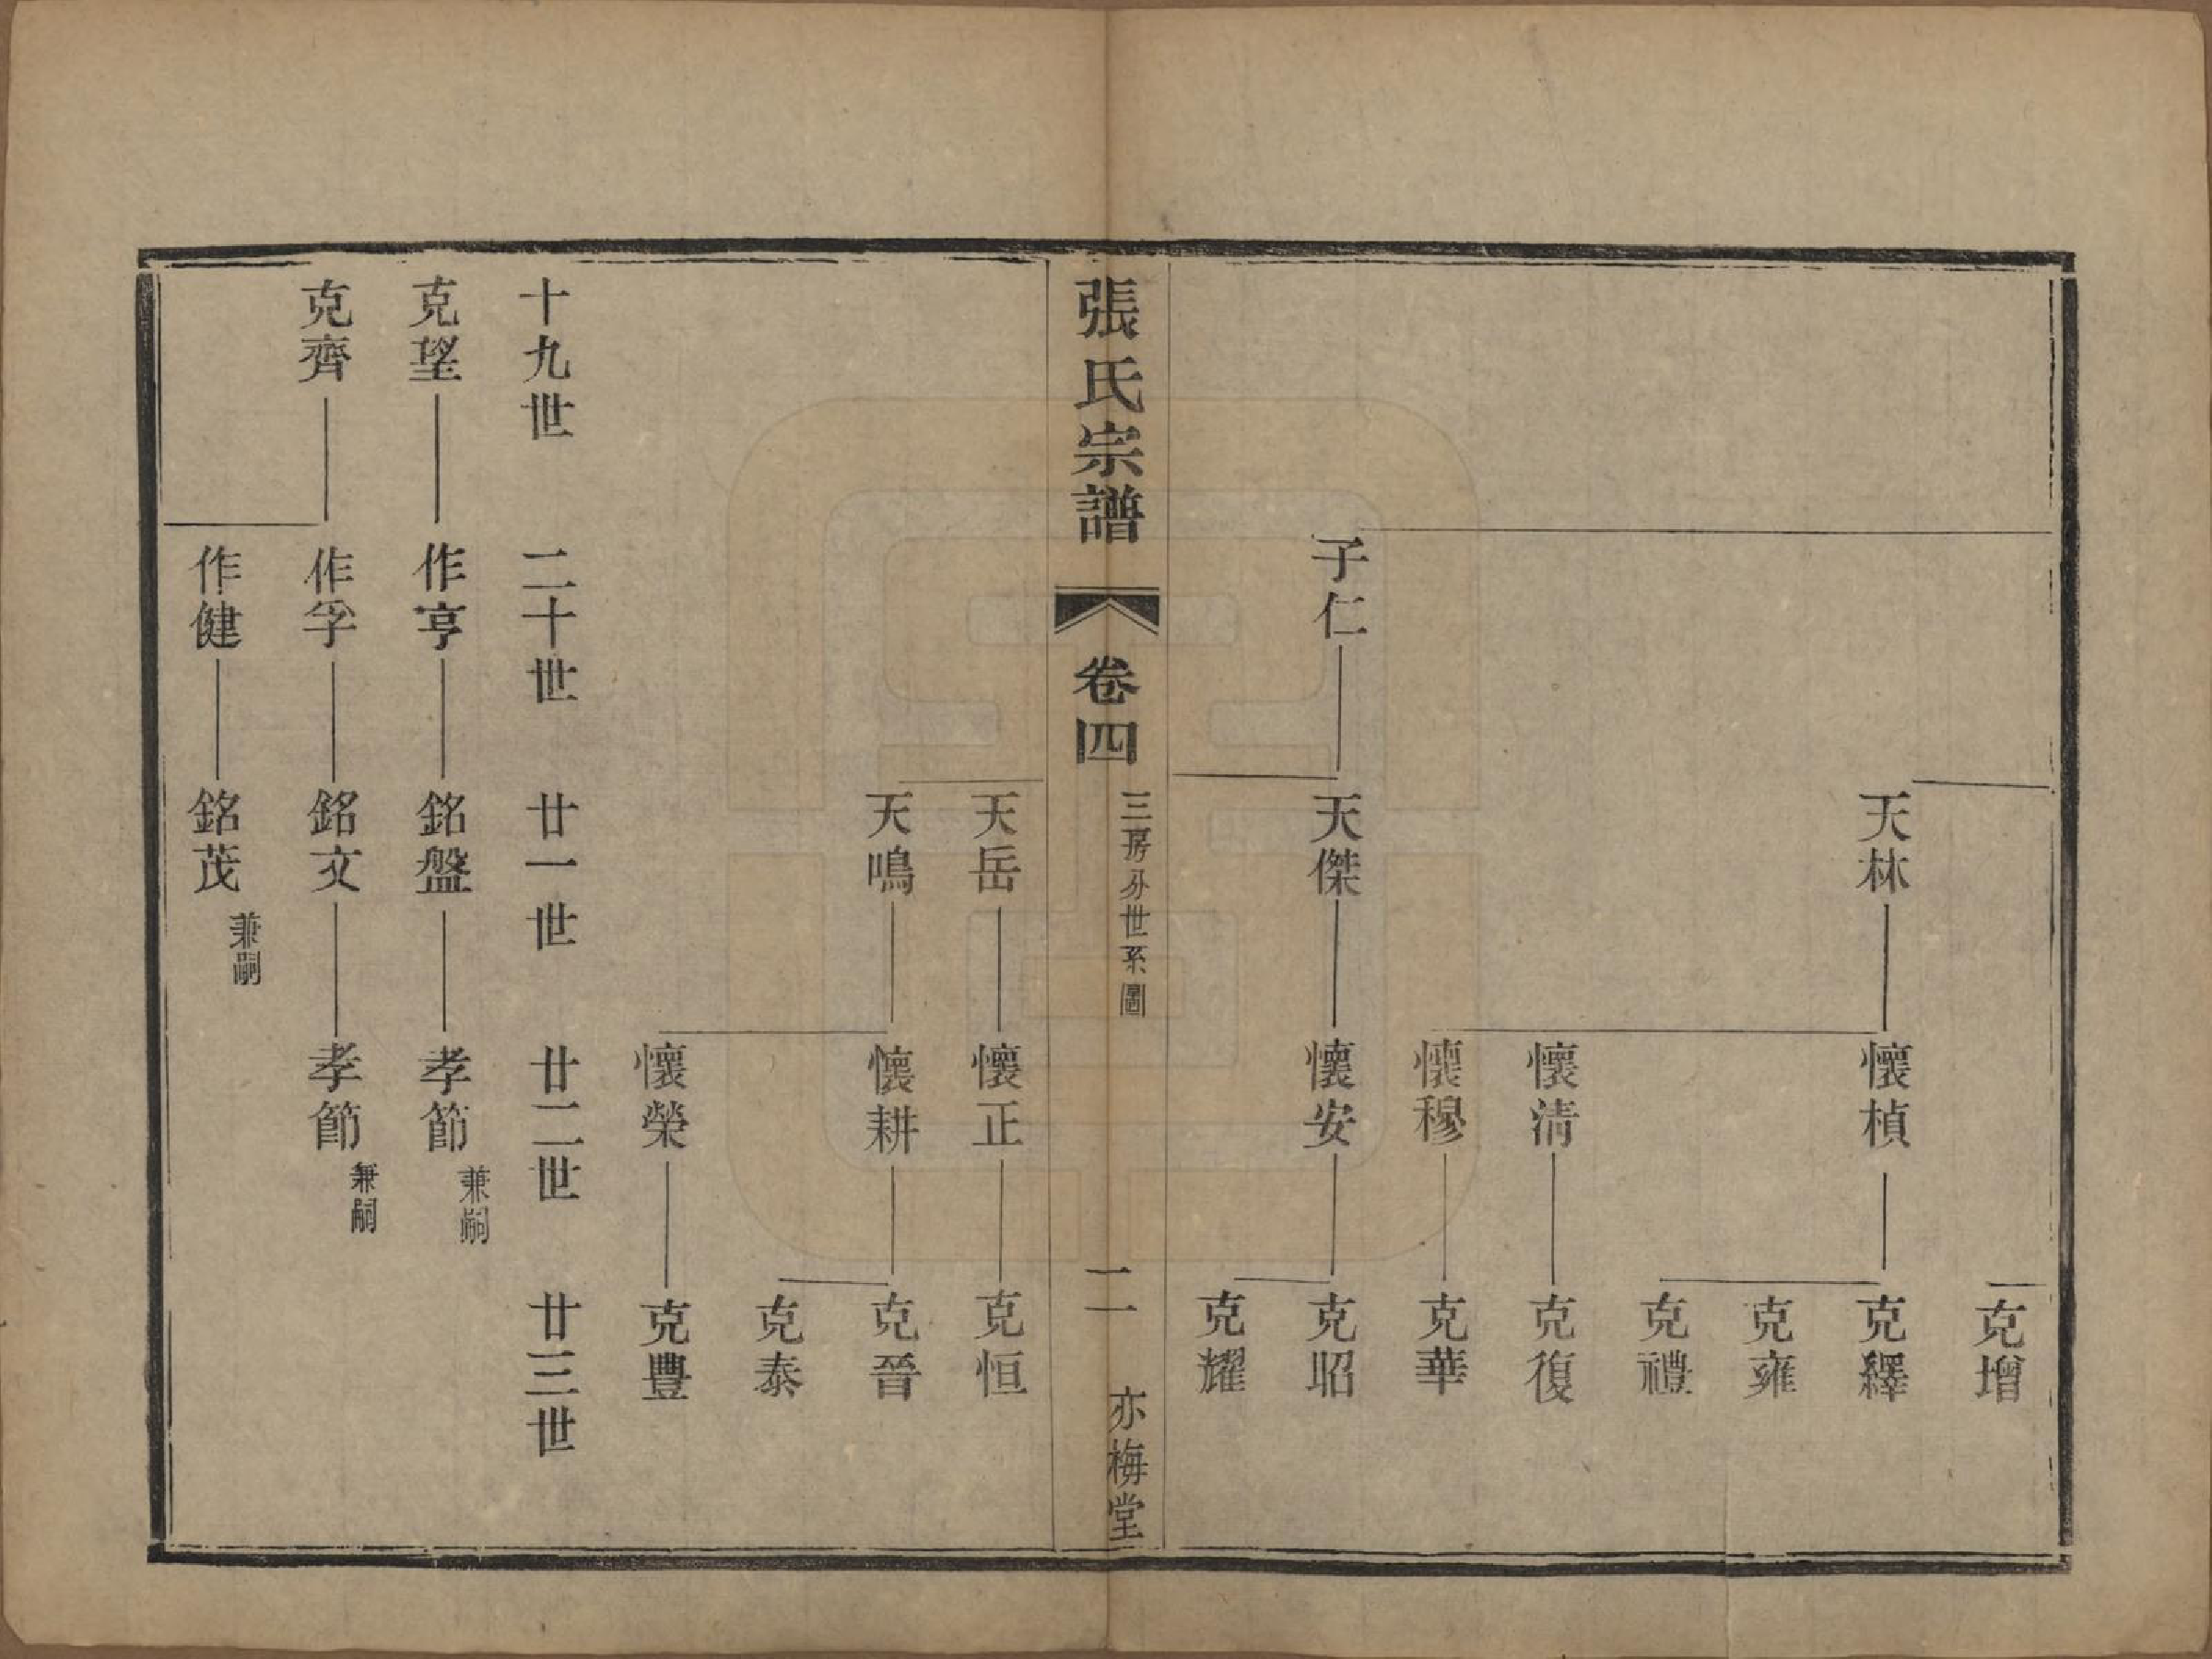 克增
天林
懷楨
克繹
克雍
克禮
懷清
克復
懷穆
克華
子仁
天傑
懷安
克昭
克耀
張氏宗譜
卷四
三房分世系圖
二
亦梅堂
天岳
懷正
克恒
天鳴
懷耕
克晉
克泰
懷榮
克豐
十九世
二十世
廿一世
廿二世
廿三世
克望
作亨
銘盤
孝節
兼嗣
克齊
作孚
銘文
孝節
兼嗣
作健
銘茂
兼嗣